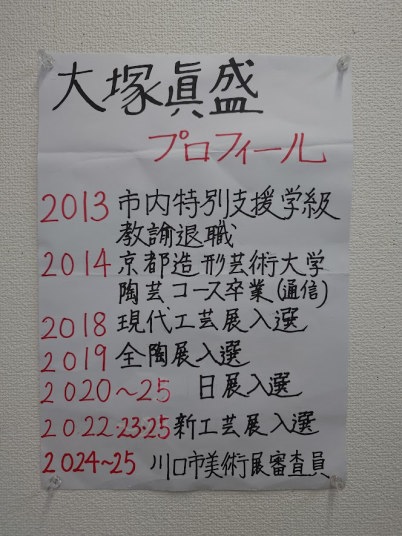 大塚眞盛
プロフィール
2013 市内特別支援学級
教諭退職
2014 京都造形芸術大学
陶芸コース卒業(通信)
2018 現代工芸展入選
2019 全陶展入選
2020～25 日展入選
2022・23・25 新工芸展入選
2024～25 川口市美術展審査員